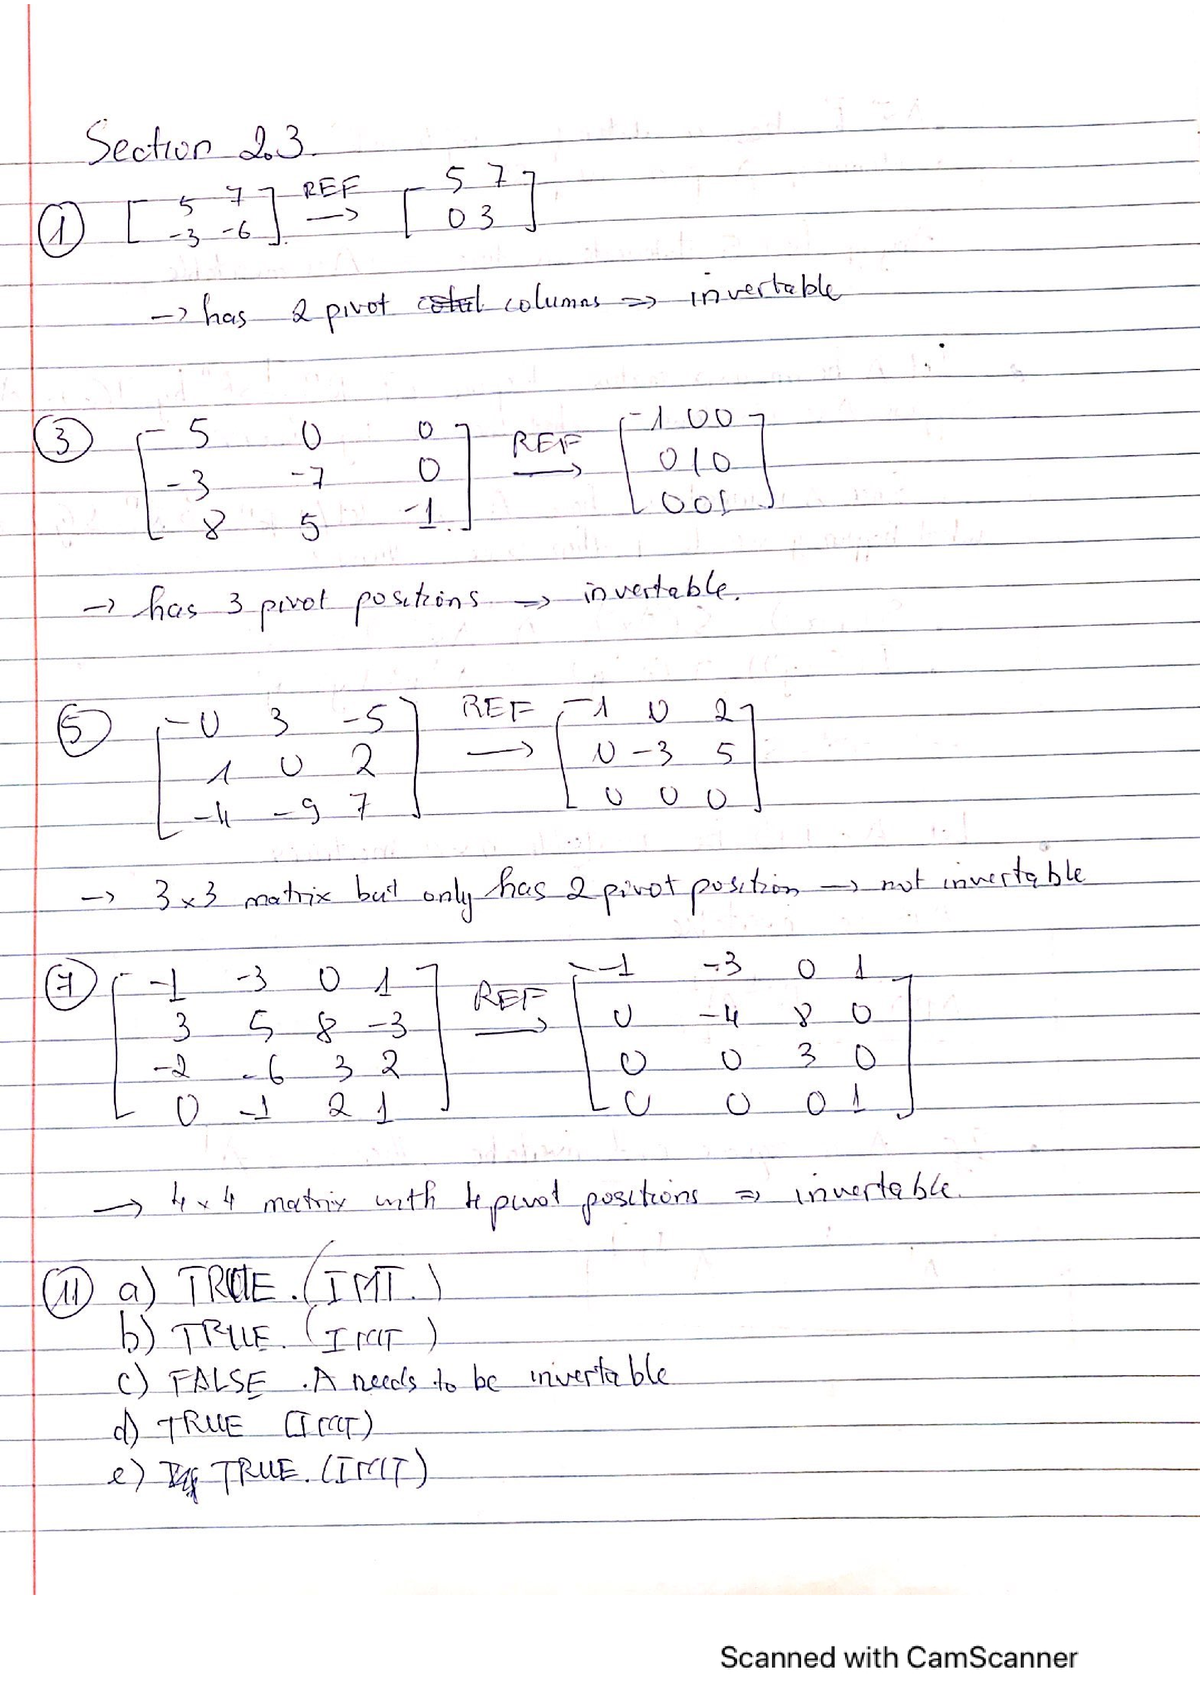 Section 2.3.
① [ 5 7 ] REF [ 5 7 ]
[ -3 -6 ]. → [ 0 3 ]
→ has 2 pivot columns => invertable
③ [ 5 0 0 ] REF [ 1 0 0 ]
[ -3 -7 0 ] → [ 0 1 0 ]
[ 8 5 -1 ]. [ 0 0 1 ]
→ has 3 pivot positions => invertable.
⑤ [ 0 3 -5 ] REF [ 1 0 2 ]
[ 1 0 2 ] → [ 0 -3 5 ]
[ -4 -9 7 ] [ 0 0 0 ]
→ 3x3 matrix but only has 2 pivot position → not invertable
⑦ [ -1 -3 0 1 ] REF [ -1 -3 0 1 ]
[ 3 5 8 -3 ] → [ 0 -4 8 0 ]
[ -2 -6 3 2 ] [ 0 0 3 0 ]
[ 0 -1 2 1 ] [ 0 0 0 1 ]
→ 4x4 matrix with 4 pivot positions => invertable.
⑪ a) TRUE. (IMT.)
b) TRUE. (IMT)
c) FALSE. A needs to be invertable
d) TRUE (IMT)
e) TRUE. (IMT)
Scanned with CamScanner